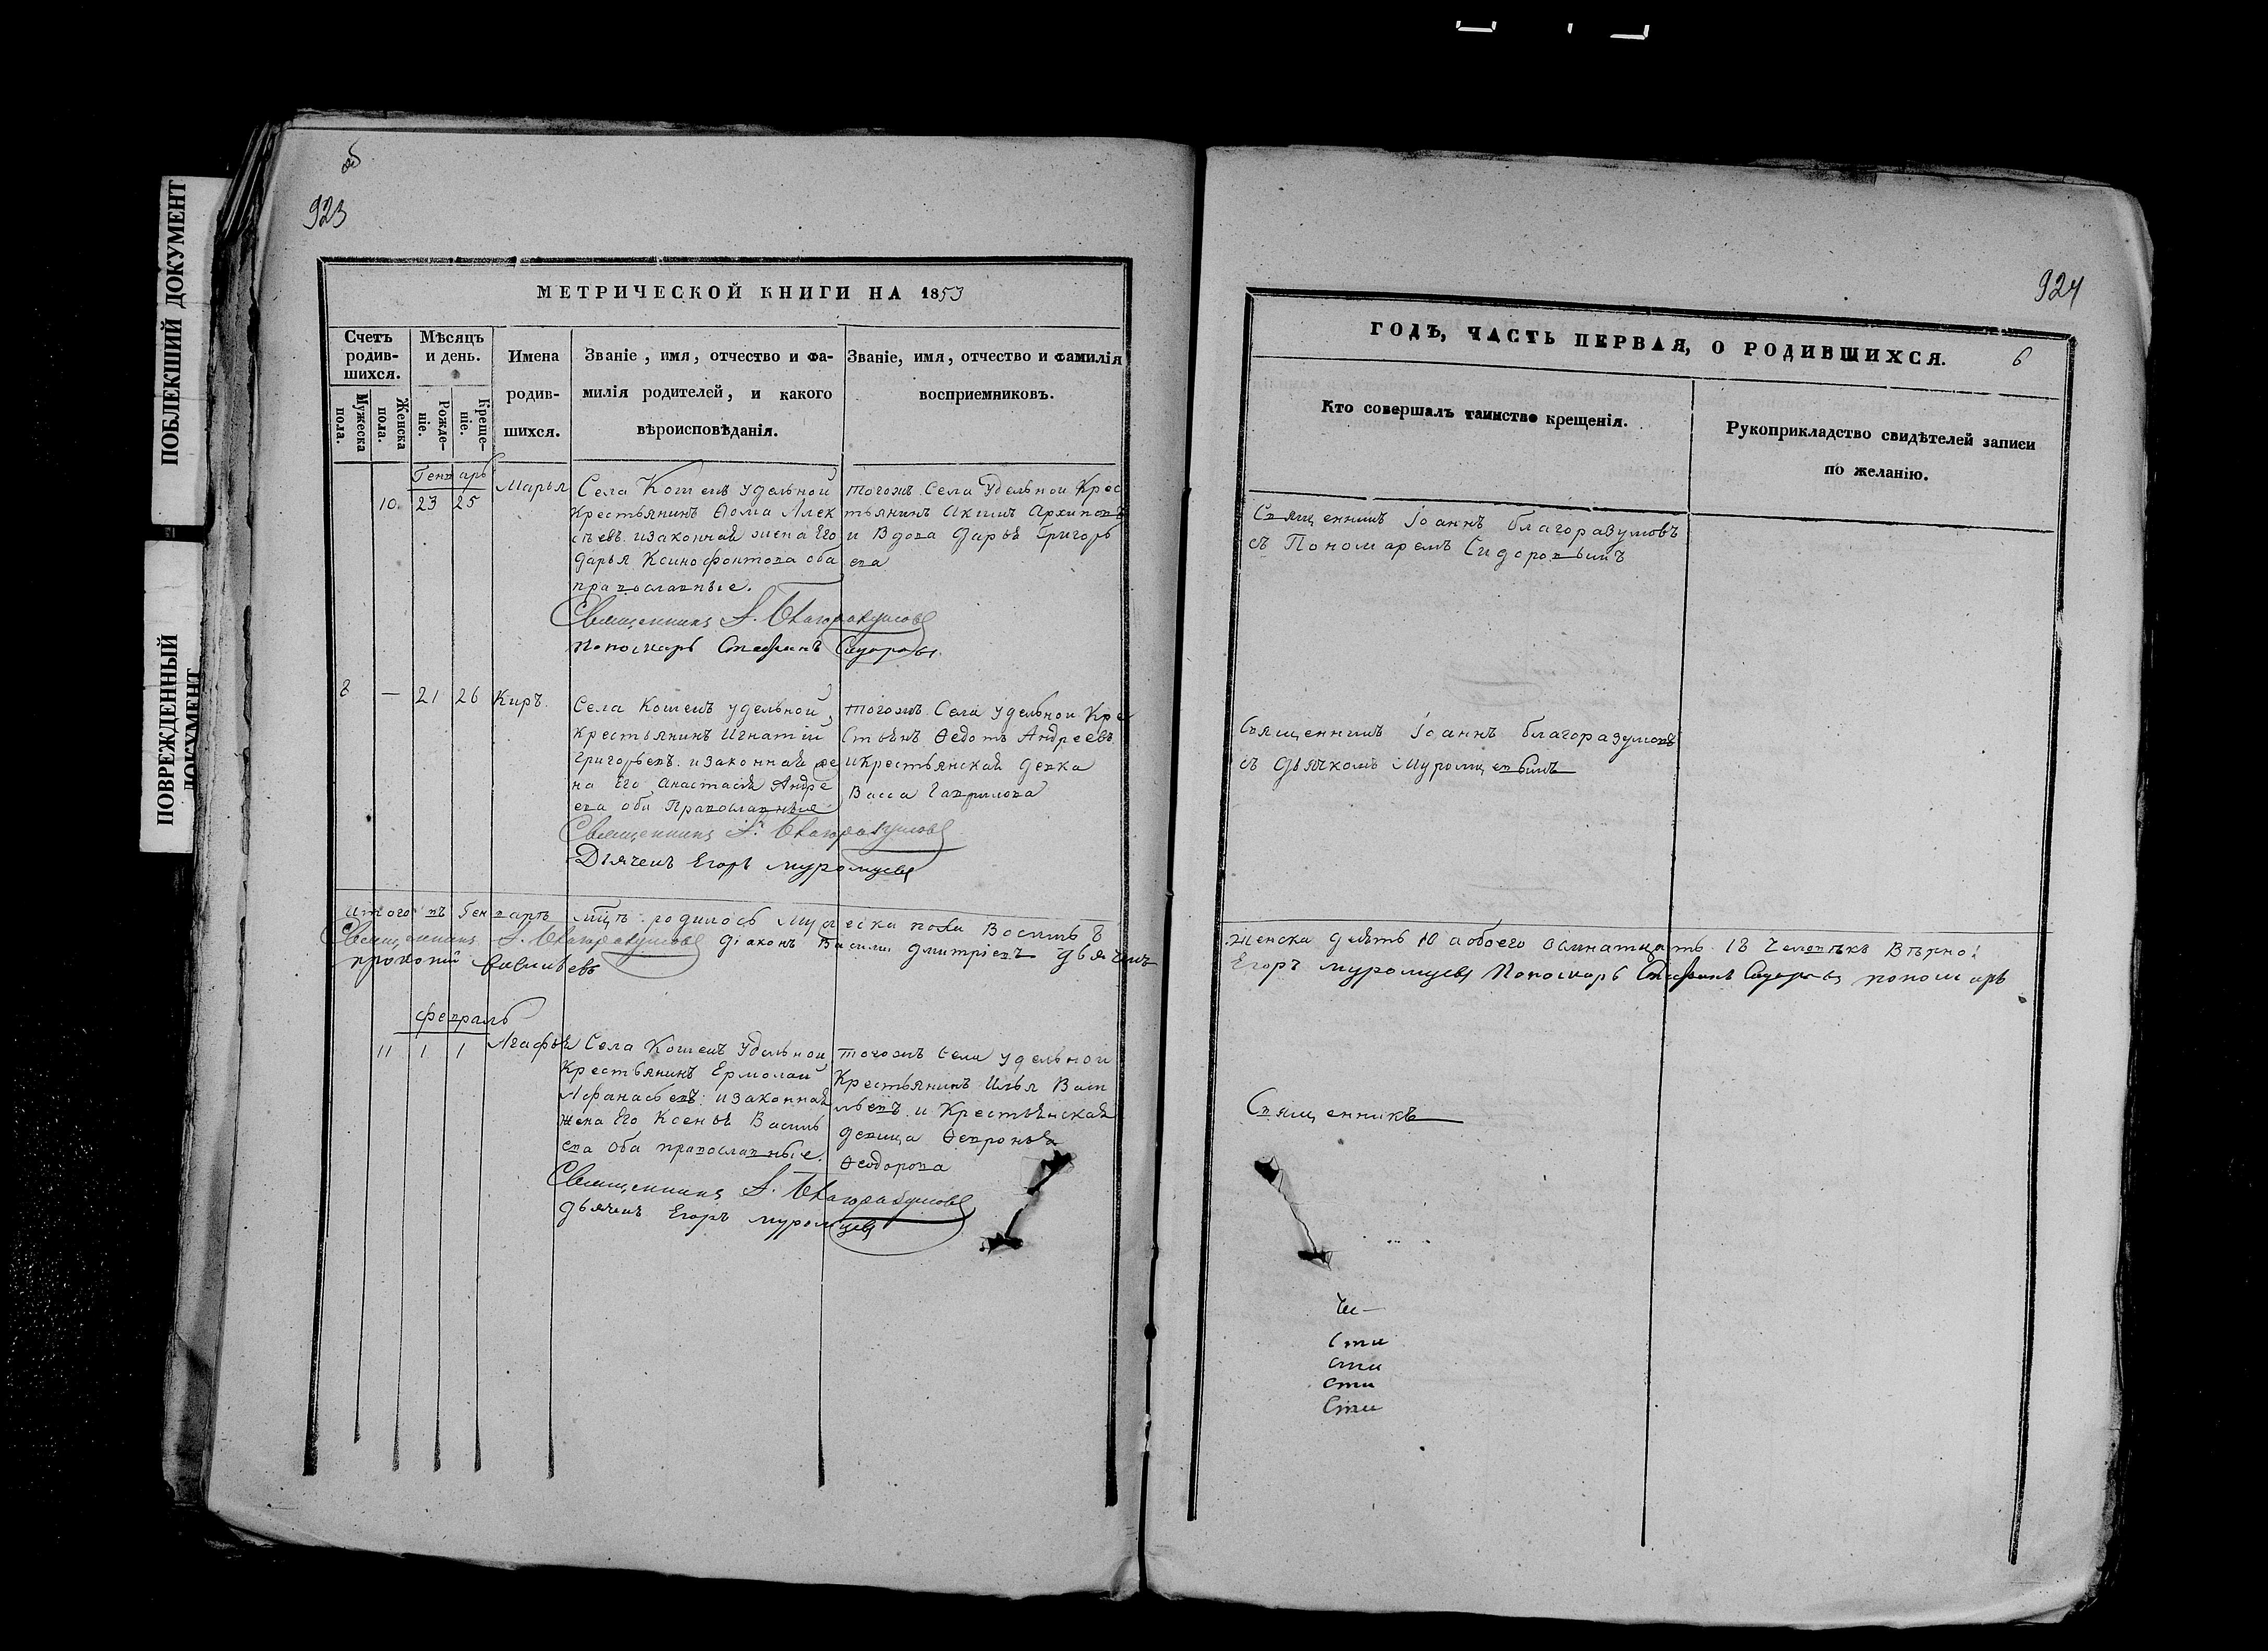 ПОБЛЕКШИЙ ДОКУМЕНТ
ПОВРЕЖДЕННЫЙ
ДОКУМЕНТ
об
923
МЕТРИЧЕСКОЙ КНИГИ НА 1853
Счетъ родив- шихся.
Мужеска пола.
Женска пола.
Мѣсяцъ и день.
Рожде- ніе.
Креще- ніе.
Имена родив- шихся.
Званіе, имя, отчество и фа-
милія родителей, и какого
вѣроисповѣданія.
Званіе, имя, отчество и фамилія
восприемниковъ.
Генварь
10. 23 25
Марья
Села Кошекъ удельной
крестьянинъ Ѳома Алек
сѣевъ. изаконная жена Его
Дарья Ксинофонтова оба
православные.
Священникъ I. Благоразумовъ
Пономарь Стефанъ Сидоровъ.
Тогожъ Села Удельнои Крес
тьянинъ Акимъ Архиповъ
и Вдова Дарья Григорь
ева
8 — 21 26 Киръ.
Села Кошекъ удельной
Крестьянинъ Игнатiи
Григорьевъ. изаконная же
на Его Анастасiя Андре
ева оби Православные
Священникъ I. Благоразумовъ
Дьячекъ Егоръ Муромцевъ
Тогожъ Села удельнои Кре
стьянъ Ѳедотъ Андреевъ
икрестьянская девка
Васса Гаврилова
Итого въ Генварѣ мцѣ родилось Мужеска пола Восимь 8
Священникъ I. Благоразумовъ Дiаконъ Васили Дмитрiевъ Дьячекъ
прокопiй Васильевъ
февраль
11 1 1 Агафья
Села Кошекъ Удельнои
Крестьянинъ Ермолаи
Афанасьевъ изаконная
жена Его Ксенья Василь
ева Оба православные.
Священникъ I. Благоразумовъ
Дьячекъ Егоръ Муромцевъ
Тогожъ Села удельнои
Крестьянинъ Илья Васи
льевъ и Крестьянская
девица Ѳевронья
Ѳеодорова
924
ГОДЪ, ЧАСТЬ ПЕРВАЯ, О РОДИВШИХСЯ.
6
Кто совершалъ таинство крещенія.
Рукоприкладство свидѣтелей записи
по желанію.
Священникъ Iоаннъ благоразумовъ
съ Пономаремъ Сидоровымъ
Священникъ Iоаннъ благоразумовъ
съ Дьячкомъ Муромцевымъ
женска десять 10 аобоего осмнатцать 18 Человѣкъ Вѣрно!
Егоръ Муромцевъ Пономарь Стефанъ Сидоровъ пономарь
Священникъ
Сти
сти
сти
Сти